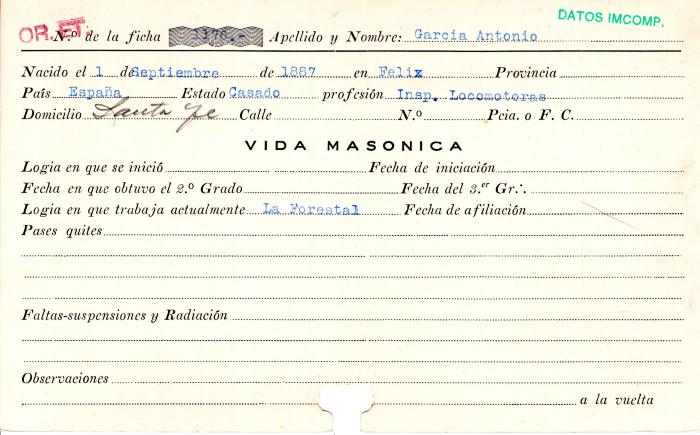 OR. ET.
DATOS IMCOMP.
N.º de la ficha 1178.- Apellido y Nombre: Garcia Antonio
Nacido el 1 de Septiembre de 1887 en Felix Provincia
País España Estado Casado profesión Insp. Locomotoras
Domicilio Santa Fe Calle N.º Pcia. o F. C.
VIDA MASONICA
Logia en que se inició Fecha de iniciación
Fecha en que obtuvo el 2.º Grado Fecha del 3.er Gr∴
Logia en que trabaja actualmente La Forestal Fecha de afiliación
Pases quites
Faltas-suspensiones y Radiación
Observaciones
a la vuelta